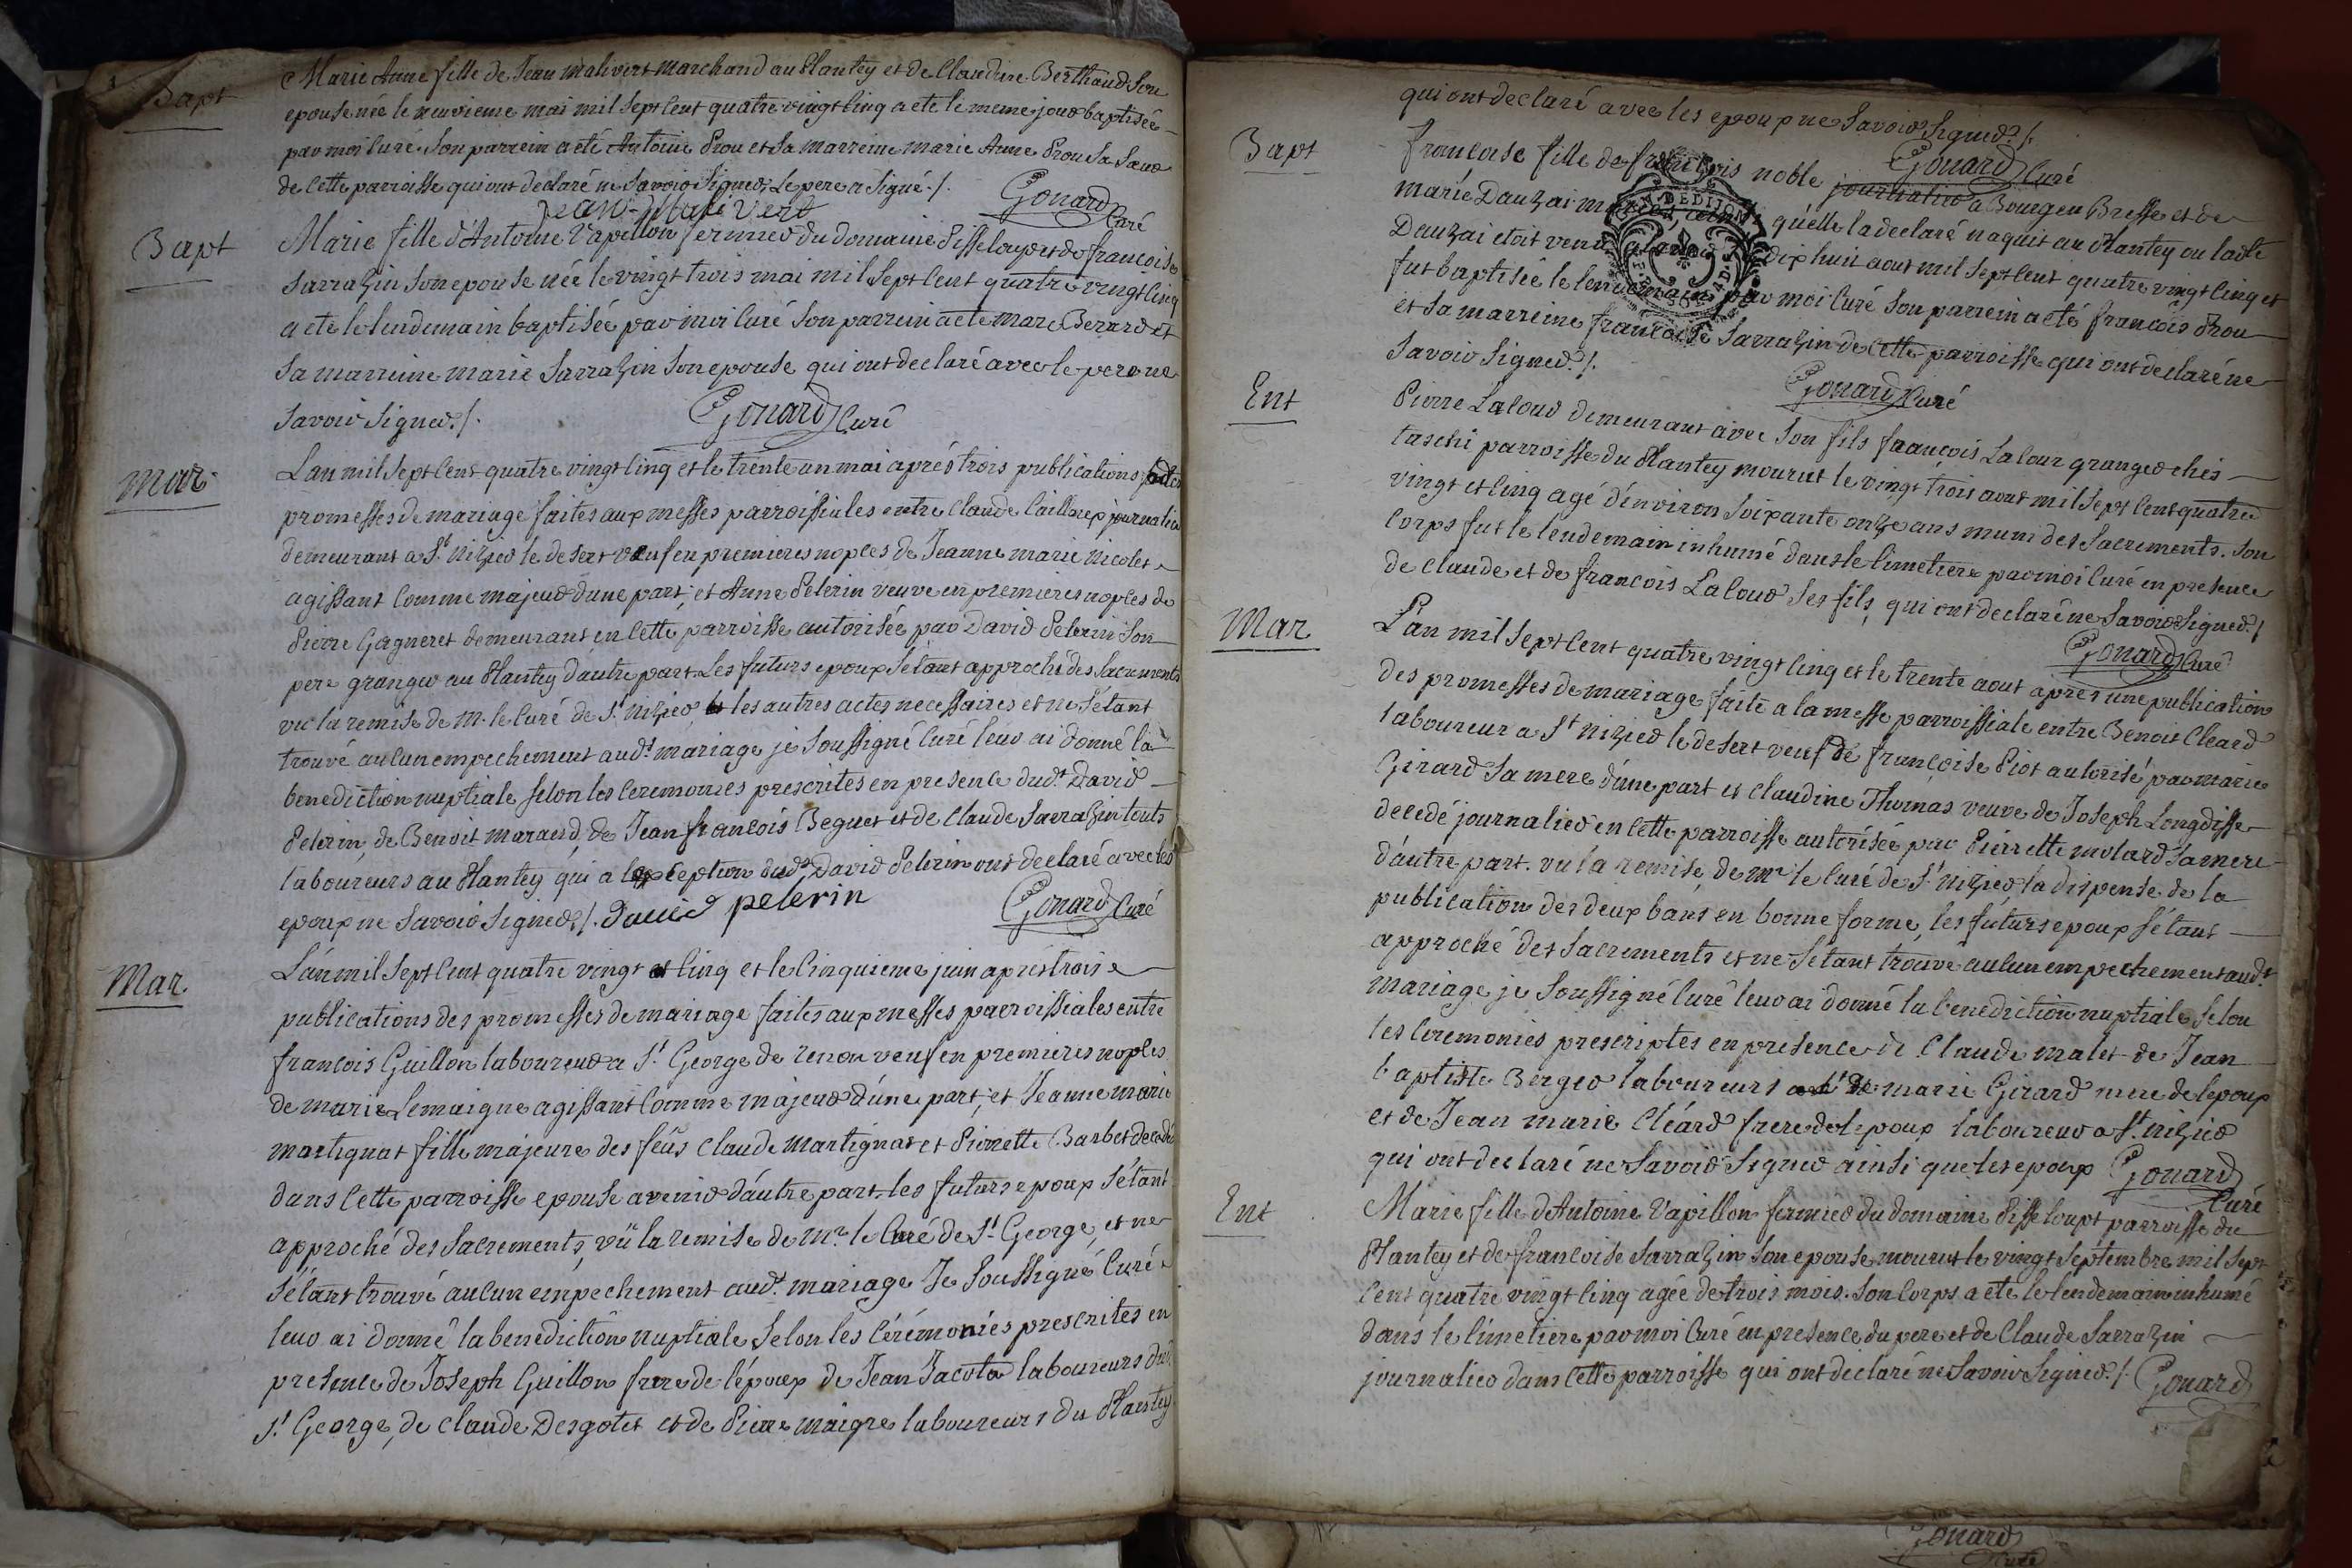 Bapt
Marie Anne fille de Jean Malivert Marchand au Plantey et de Claudine Berthaud Son
epouse née le neuvieme mai mil Sept Cent quatre vingt cinq a eté le meme jour baptisée
par moi Curé. Son parrein a eté Antoine Prou et Sa marreine marie Anne Prou Sa Sœur
de Cette parroisse qui ont declaré ne Savoir Signer, Le pere a Signé ./.
jean Malivert
Gonard Curé
Bapt
Marie fille d'Antoine Vapillon fermier du domaine Pisseloup et de françoise
Sarrazin Son epouse née le vingt trois mai mil Sept Cent quatre vingt cinq
a eté le lendemain baptisée par moi Curé Son parrein a eté Marc Berard et
Sa marreine marie Sarrazin Son epouse qui ont declaré avec le pere ne
Savoir Signer ./.
Gonard Curé
Mar.
L'an mil Sept Cent quatre vingt Cinq et le trente un mai aprés trois publications
promesses de mariage faites aux messes parroissiales entre Claude journalier
demeurant a St. Nizier le desert veuf en premieres noples de Jeanne marie Nicolet
agissant Comme majeur d'une part, et Anne Pelerin veuve en premieres noples de
Pierre Gagneret demeurant en Cette parroisse autorisée par David Pelerin Son
pere granger au Plantey d'autre part. Les futurs epoux S'étant approché des Sacrements
vu la remise de M. le Curé de St. Nizier, les autres actes necessaires et ne S'étant
trouvé aucun empechement aud.t mariage je Soussigné Curé leur ai donné la
benediction nuptiale Selon les Ceremonies prescrites en presence dud.t David
Pelerin, de Benoit maraud, de Jean françois Beguet et de Claude Sarrazin touts
laboureurs au Plantey qui a l'exception dud.t David Pelerin ont declaré avec les
epoux ne Savoir Signer ./. david pelerin
Gonard Curé
Mar.
L'an mil Sept Cent quatre vingt et Cinq et le Cinquieme juin aprés trois
publications des promesses de mariage faites aux messes parroissiales entre
françois Guillon laboureur a St. George de renon veuf en premieres noples
de marie Lemaigne agissant Comme majeur d'une part, et Jeanne marie
martignat fille majeure des feüs Claude Martignat et Pierrette Barbet decedés
dans Cette parroisse epouse avenir d'autre part. les futurs epoux S'étant
approché des Sacrements, vü la remise de Mr. le Curé de St. George, et ne
S'étant trouvé aucun empechement aud.t mariage Je Soussigné Curé
leur ai donné la benediction nuptiale Selon les Cérémonies prescrites en
presence de Joseph Guillon frere de l'époux de Jean laboureurs dud.
St. George, de Claude Desgotes et de Pierre maigre laboureurs du Plantey
qui ont declaré avec les epoux ne Savoir Signer ./.
Gonard Curé
Bapt
françoise fille de françois noble journalier a Bourg en Bresse et de
marie Dauzai qu'elle l'a declaré naquit au Plantey ou ladte
Dauzai etoit dix huit aout mil Sept Cent quatre vingt Cinq et
fut baptisée le lendemain par moi Curé Son parrein a eté françois Prou
et Sa marreine françoise Sarrazin de Cette parroisse qui ont declaré ne
Savoir Signer ./.
Gonard Curé
Ent
Pierre Lalour demeurant avec Son fils françois Lalour granger chés
parroisse du Plantey mourut le vingt trois aout mil Sept Cent quatre
vingt et Cinq agé d'environ Soixante onze ans muni des Sacrements. Son
Corps fut le lendemain inhumé dans le Cimetiere par moi Curé en presence
de Claude et de françois Lalour Ses fils, qui ont declaré ne Savoir Signer ./.
Gonard Curé
Mar
L'an mil Sept Cent quatre vingt Cinq et le trente aout aprés une publication
des promesses de mariage faite a la messe parroissiale entre Benoit Cleard
laboureur a St Nizier le desert veuf de françoise Piot autorisé par marie
Girard Sa mere d'une part et Claudine Thomas veuve de Joseph
decedé journalier en Cette parroisse autorisée par Pierrette molard Sa mere
d'autre part. vu la remise de Mr le Curé de St. Nizier, la dispense de la
publication des deux bans en bonne forme, les futurs epoux S'étant
approché des Sacrements et ne S'étant trouvé aucun empechement aud.t
mariage je Soussigné Curé leur ai donné la benediction nuptiale Selon
les Ceremonies prescriptes en presence de Claude malet de Jean
baptiste Berger laboureurs de marie Girard mere de l'epoux
et de Jean marie Cléard frere de l'epoux laboureur a St. Nizier
qui ont declaré ne Savoir Signer ainsi que les epoux
Gonard Curé
Ent
Marie fille d'Antoine Vapillon fermier du domaine Pisseloupt parroisse du
Plantey et de françoise Sarrazin Son epouse mourut le vingt Septembre mil Sept
Cent quatre vingt Cinq agée de trois mois. Son Corps a eté le lendemain inhumé
dans le Cimetiere par moi Curé en presence du pere et de Claude Sarrazin
journalier dans Cette parroisse qui ont declaré ne Savoir Signer ./. Gonard
Gonard
Curé